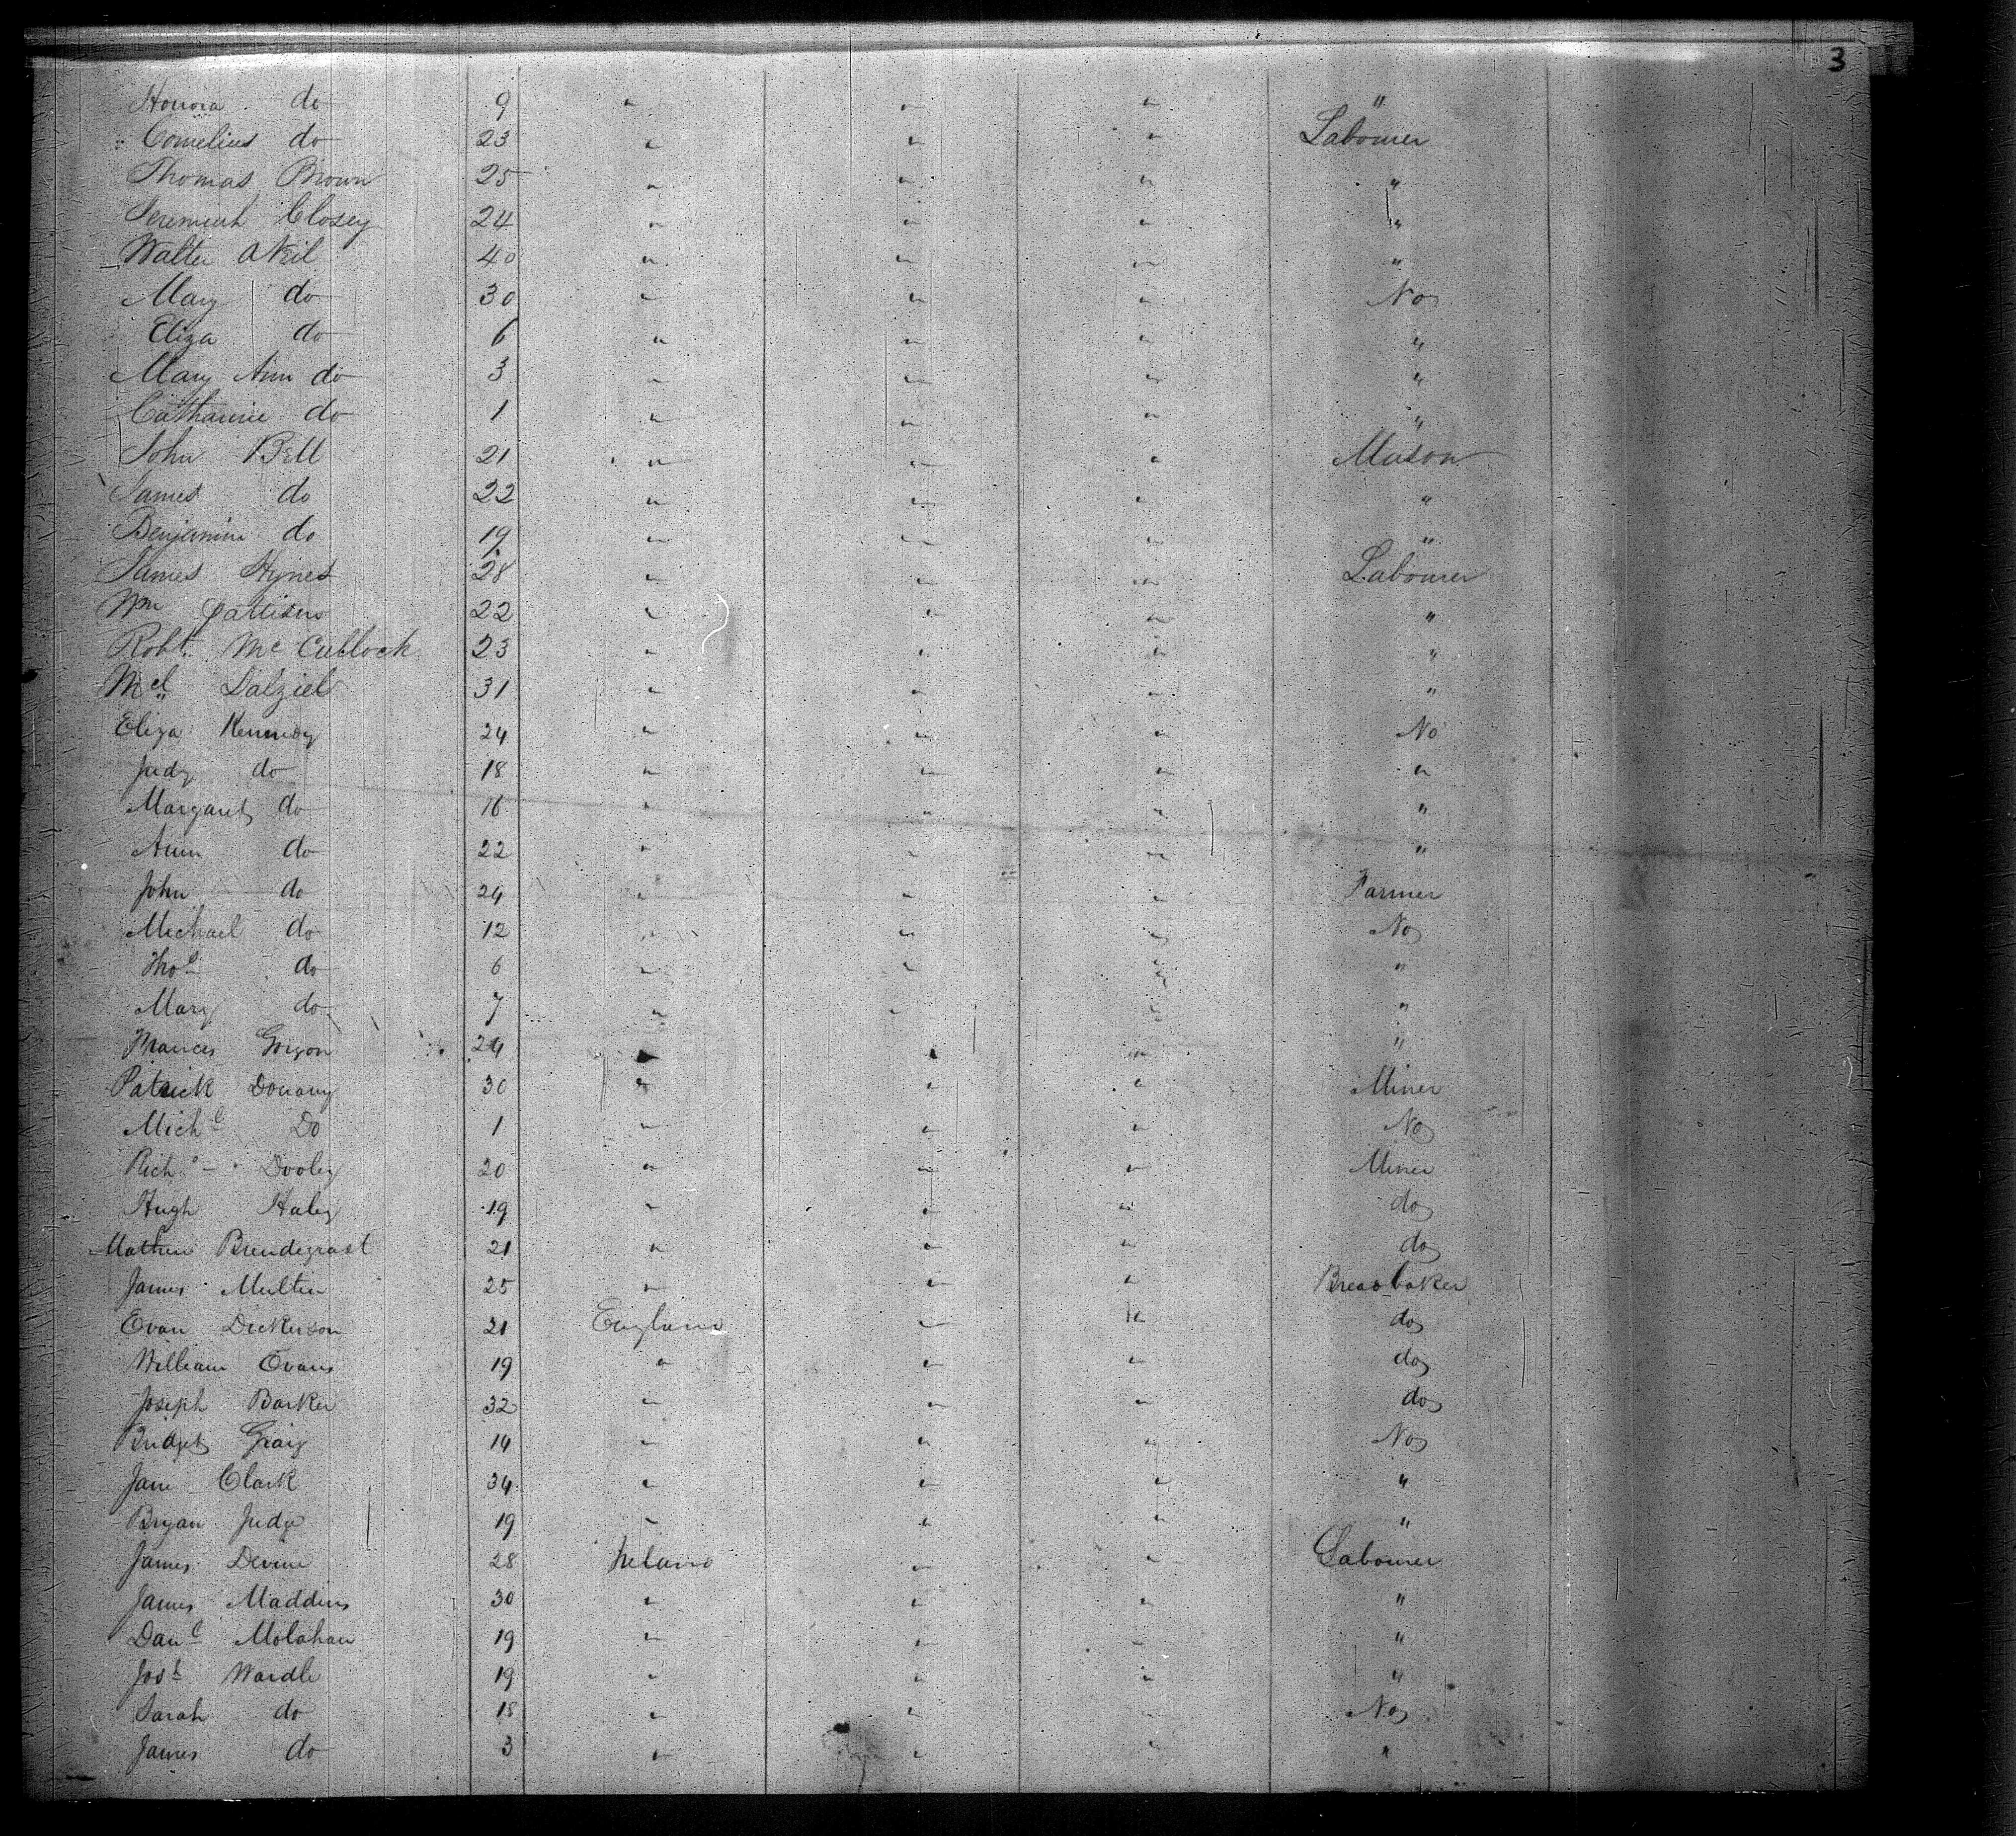 3
Honora do 9 " " " "
Cornelius do 23 " " " Labourer
Thomas Brown 25 " " " "
Jeremiah Closey 24 " " " "
Walter ONeil 40 " " " "
Mary do 30 " " " No
Eliza do 6 " " " "
Mary Ann do 3 " " " "
Catharine do 1 " " " "
John Bell 21 " " " Mason
James do 22 " " " "
Benjamin do 19 " " " "
James Hynes 28 " " " Labourer
Wm 22 " " " "
Robt. Mc Cullock 23 " " " "
Dalziel 31 " " " "
Eliza Kennedy 24 " " " No
Judy do 18 " " " "
Margaret do 16 " " " "
Ann do 22 " " " "
John do 24 " " " Farmer
Michael do 12 " " " No
Thos do 6 " " " "
Mary do 7 " " " "
24 " " " "
Patrick 30 " " " Miner
Michl Do 1 " " " No
Richd Dooley 20 " " " Miner
Hugh Haley 19 " " " do
Mathew 21 " " " do
James 25 " " " Bread baker
Evan Dickerson 21 England " " do
William Evans 19 " " " do
Joseph Barker 32 " " " do
Bridget 14 " " " No
Jane Clark 34 " " " "
Bryan Judge 19 " " " "
James Devine 28 Ireland " " Labourer
James Maddins 30 " " " "
Danl Molahan 19 " " " "
Josh Wardle 19 " " " "
Sarah do 18 " " " No
James do 3 " " " "